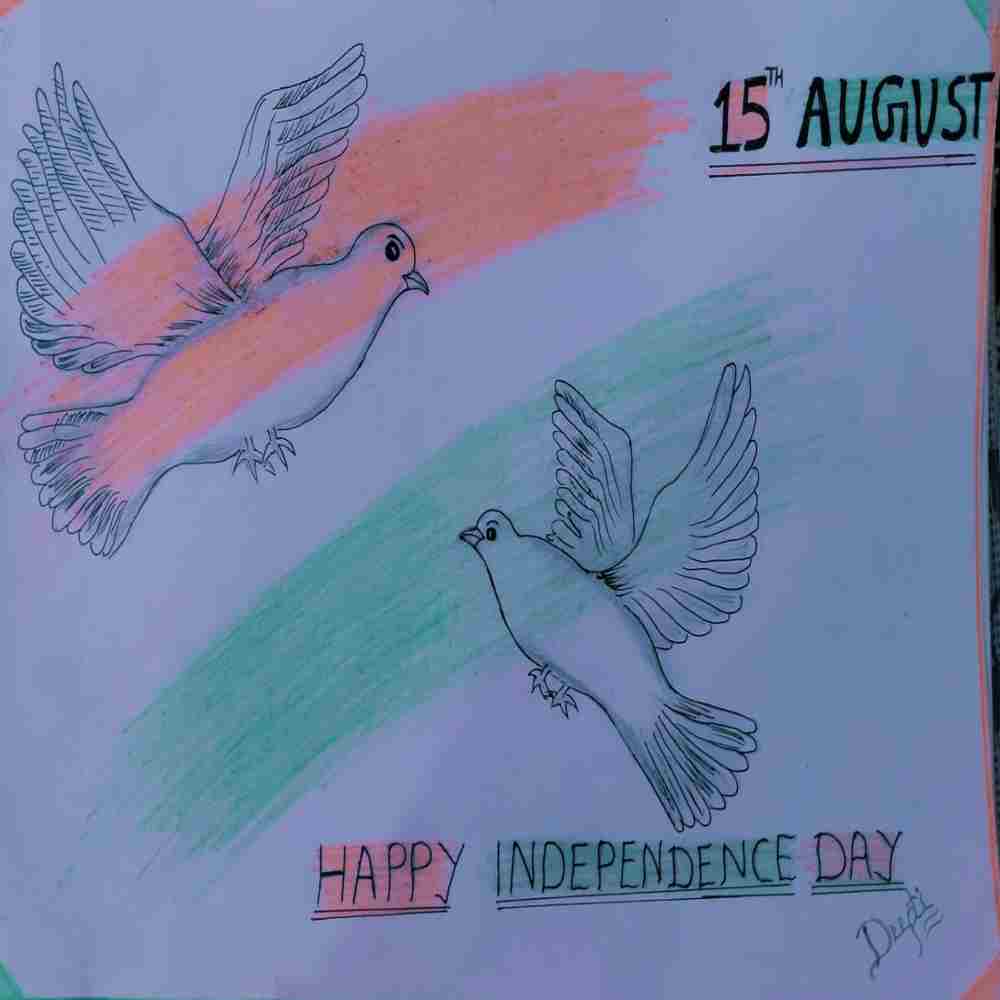 15TH AUGUST
HAPPY INDEPENDENCE DAY
Deepti